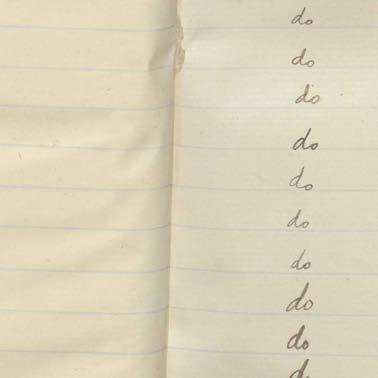 do
do
do
do
do
do
do
do
do
do